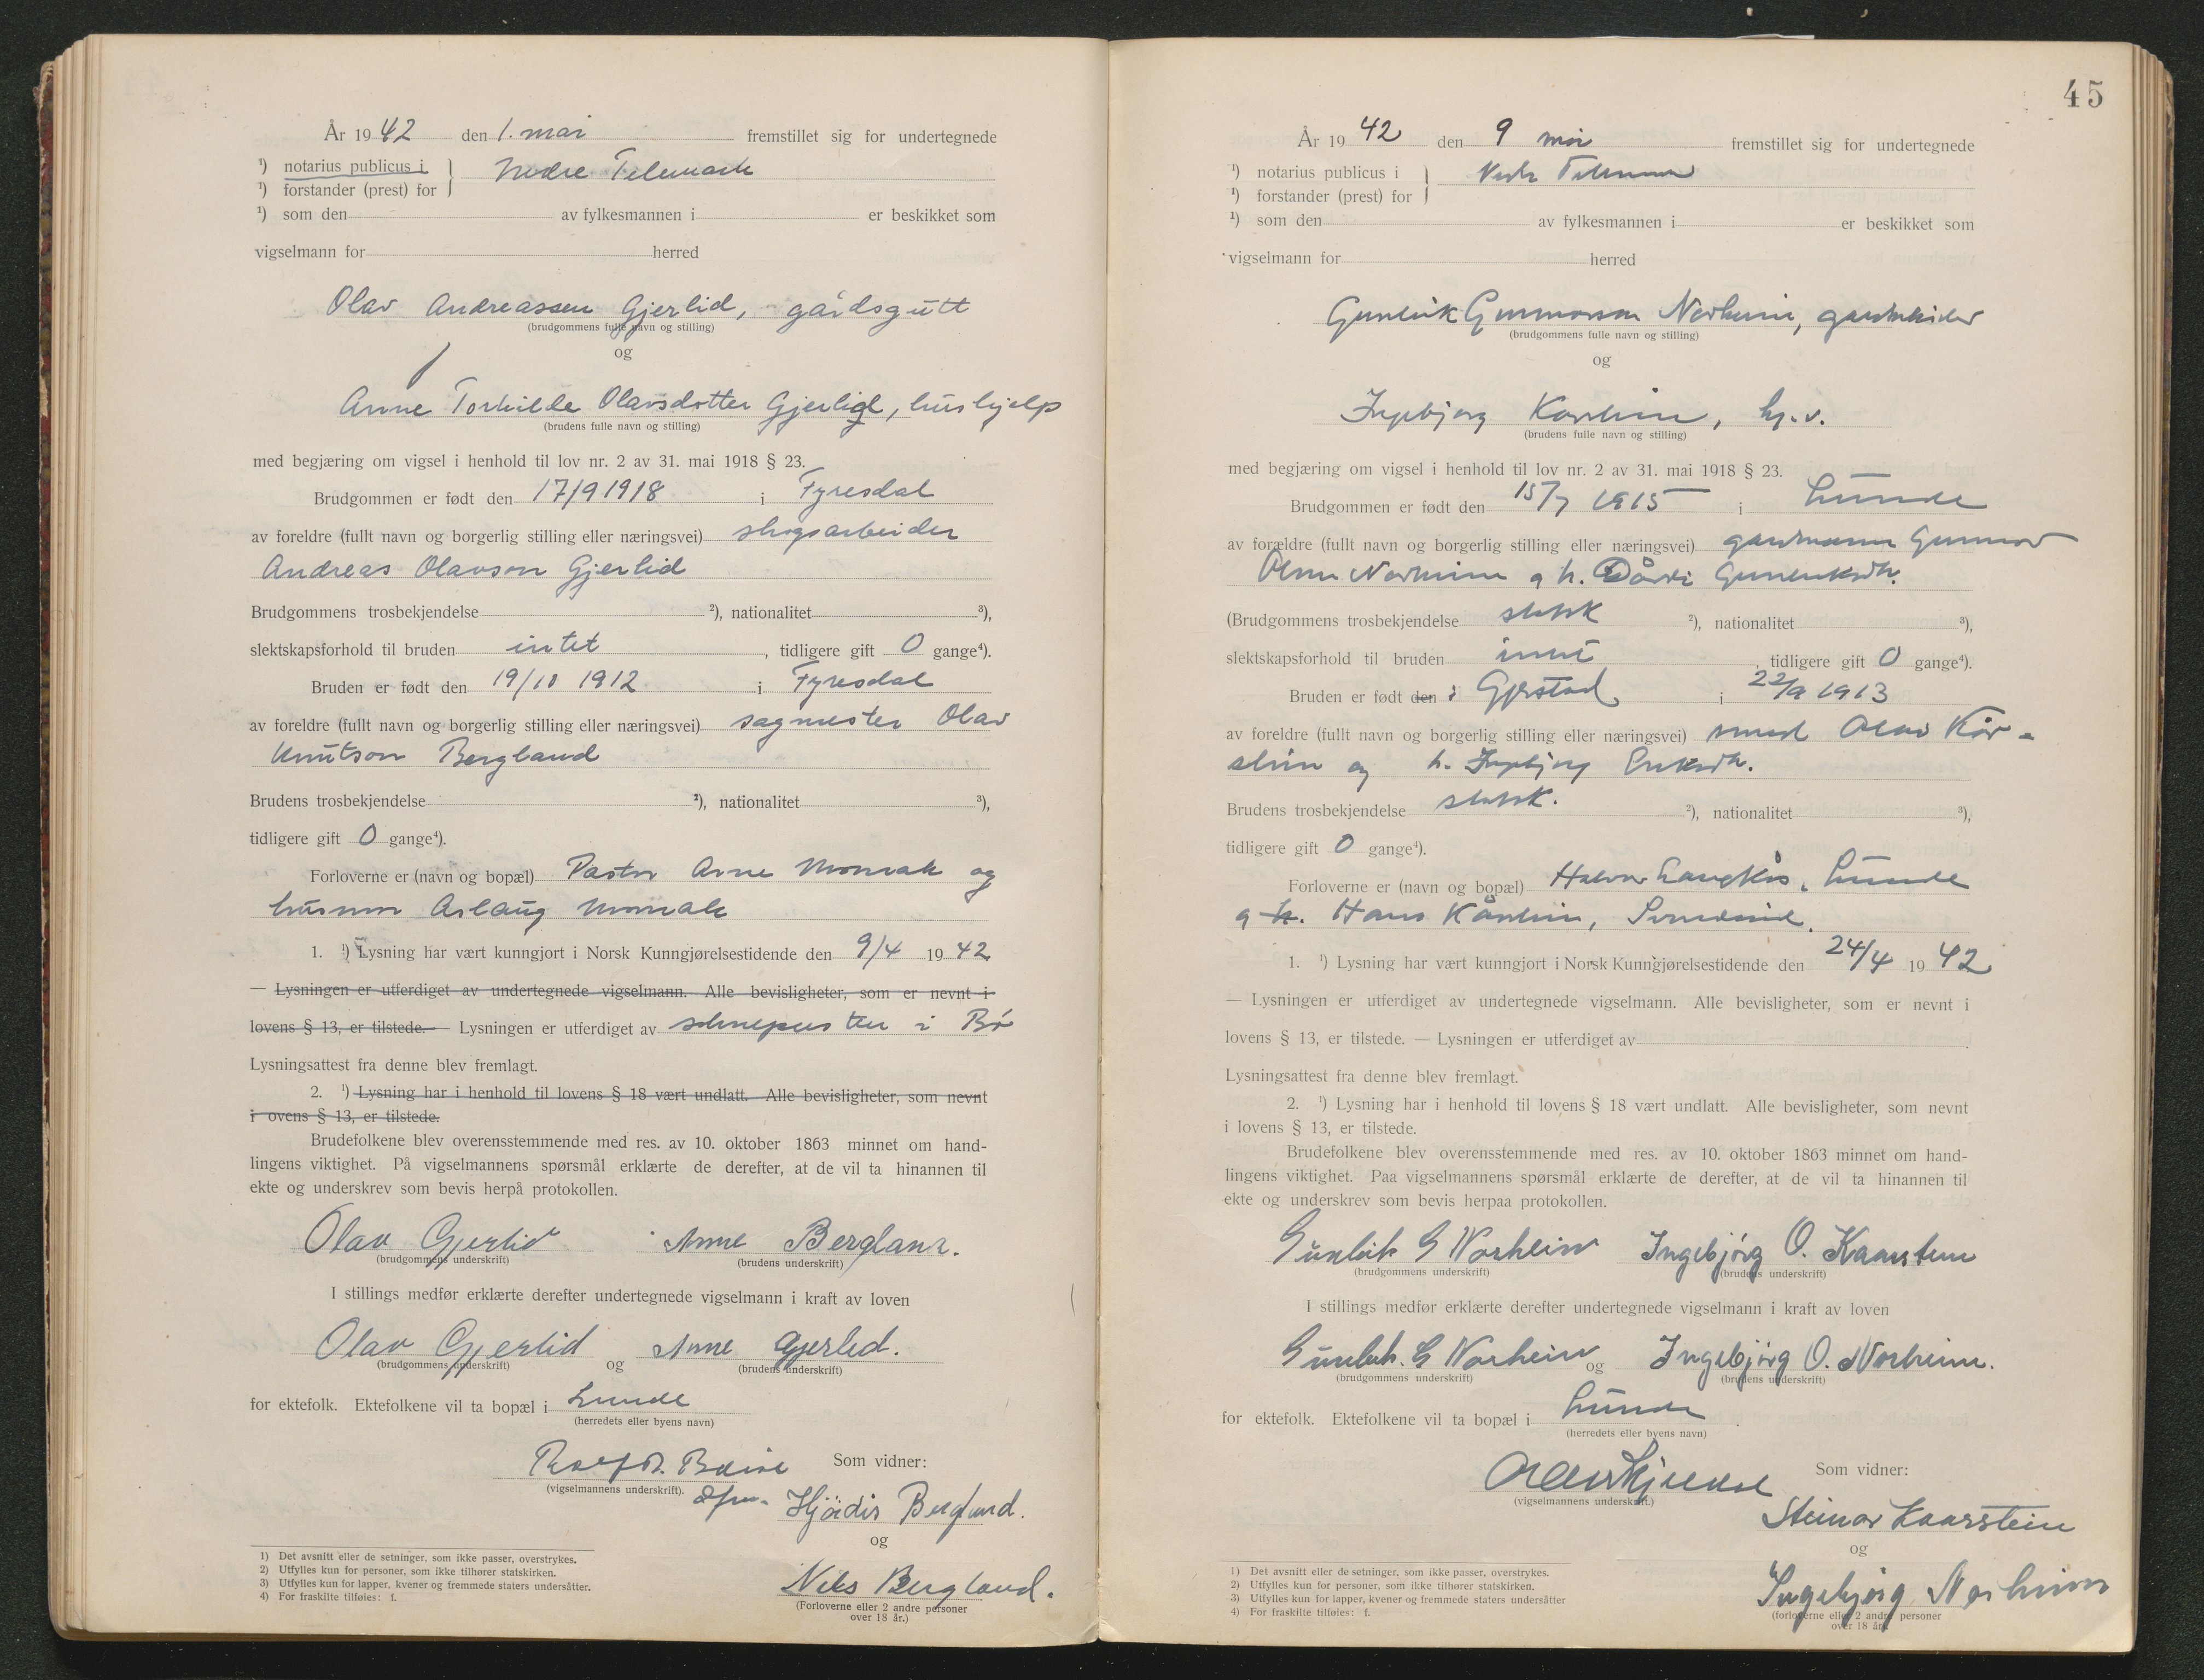 År 1942 den 1. mai fremstillet sig for undertegnede
¹) notarius publicus i } Nedre Telemark
¹) forstander (prest) for
¹) som den av fylkesmannen i er beskikket som
vigselmann for herred
Olav Andreassen Gjerlid, gårdsgutt
(brudgommens fulle navn og stilling)
og
Anne Torhilde Olavsdotter Gjerlid, hushjelp
(brudens fulle navn og stilling)
med begjæring om vigsel i henhold til lov nr. 2 av 31. mai 1918 § 23.
Brudgommen er født den 17/9 1918 i Fyresdal
av foreldre (fullt navn og borgerlig stilling eller næringsvei) skogsarbeider
Andreas Olavson Gjerlid
Brudgommens trosbekjendelse ²), nationalitet ³),
slektskapsforhold til bruden intet, tidligere gift 0 gange⁴).
Bruden er født den 19/10 1912 i Fyresdal
av foreldre (fullt navn og borgerlig stilling eller næringsvei) sagmester Olav
Knutson Bergland
Brudens trosbekjendelse ²), nationalitet ³),
tidligere gift 0 gange⁴).
Forloverne er (navn og bopæl) Pastor Arne Monrak og
husmor Aslaug Monrak
1. ¹) Lysning har vært kunngjort i Norsk Kunngjørelsestidende den 9/4 1942
— Lysningen er utferdiget av undertegnede vigselmann. Alle bevisligheter, som er nevnt i
lovens § 13, er tilstede. — Lysningen er utferdiget av soknepresten i Bø
Lysningsattest fra denne blev fremlagt.
2. ¹) Lysning har i henhold til lovens § 18 vært undlatt. Alle bevisligheter, som nevnt
i ovens § 13, er tilstede.
Brudefolkene blev overensstemmende med res. av 10. oktober 1863 minnet om hand-
lingens viktighet. På vigselmannens spørsmål erklærte de derefter, at de vil ta hinannen til
ekte og underskrev som bevis herpå protokollen.
Olav Gjerlid Anne Bergland.
(brudgommens underskrift) (brudens underskrift)
I stillings medfør erklærte derefter undertegnede vigselmann i kraft av loven
Olav Gjerlid og Anne Gjerlid.
(brudgommens underskrift) (brudens underskrift)
for ektefolk. Ektefolkene vil ta bopæl i Lunde
(herredets eller byens navn)
Som vidner:
(vigselmannens underskrift).
Hjördis Bergland.
og
Nils Bergland.
(Forloverne eller 2 andre personer
over 18 år.)
1) Det avsnitt eller de setninger, som ikke passer, overstrykes.
2) Utfylles kun for personer, som ikke tilhører statskirken.
3) Utfylles kun for lapper, kvener og fremmede staters undersåtter.
4) For fraskilte tilføies: f.
45
År 1942 den 9 mai fremstillet sig for undertegnede
¹) notarius publicus i } Nedre Telemark
¹) forstander (prest) for
¹) som den av fylkesmannen i er beskikket som
vigselmann for herred
Gunleik Gunnarson Norheim, gardarbeider
(brudgommens fulle navn og stilling)
og
Ingebjørg Kårstein, hj.v.
(brudens fulle navn og stilling)
med begjæring om vigsel i henhold til lov nr. 2 av 31. mai 1918 § 23.
Brudgommen er født den 15/7 1915 i Lunde
av forældre (fullt navn og borgerlig stilling eller næringsvei) gardmann Gunnar
Olsen Norheim og h. Gunleiksdtr.
(Brudgommens trosbekjendelse statsk ²), nationalitet ³),
slektskapsforhold til bruden intet, tidligere gift 0 gange⁴).
Bruden er født den i Gjerstad i 22/9 1913
av foreldre (fullt navn og borgerlig stilling eller næringsvei) smed Olav Kår-
stein og h. Ingebjørg Eriksdtr.
Brudens trosbekjendelse statsk. ²), nationalitet ³),
tidligere gift 0 gange⁴).
Forloverne er (navn og bopæl) Halvor Langkås, Lunde
og h. Hans Kårstein,
1. ¹) Lysning har vært kunngjort i Norsk Kunngjørelsestidende den 24/4 1942
— Lysningen er utferdiget av undertegnede vigselmann. Alle bevisligheter, som er nevnt i
lovens § 13, er tilstede. — Lysningen er utferdiget av
Lysningsattest fra denne blev fremlagt.
2. ¹) Lysning har i henhold til lovens § 18 vært undlatt. Alle bevisligheter, som nevnt
i lovens § 13, er tilstede.
Brudefolkene blev overensstemmende med res. av 10. oktober 1863 minnet om hand-
lingens viktighet. Paa vigselmannens spørsmål erklærte de derefter, at de vil ta hinannen til
ekte og underskrev som bevis herpaa protokollen.
Gunleik G Norheim Ingebjörg O. Kaarstein
(brudgommens underskrift) (brudens underskrift)
I stillings medfør erklærte derefter undertegnede vigselmann i kraft av loven
Gunleik. G Norheim og Ingebjörg O. Norheim.
(brudgommens underskrift) (brudens underskrift)
for ektefolk. Ektefolkene vil ta bopæl i Lunde
(herredets eller byens navn)
Som vidner:
(vigselmannens underskrift.)
Steinar Kaarstein
og
Ingebjørg Norheim
(forloverne eller 2 andre personer
over 18 år.)
1) Det avsnitt eller de setninger, som ikke passer, overstrykes.
2) Utfylles kun for personer, som ikke tilhører statskirken.
3) Utfylles kun for lapper, kvener og fremmede staters undersåtter
4) For fraskilte tilføies: f.